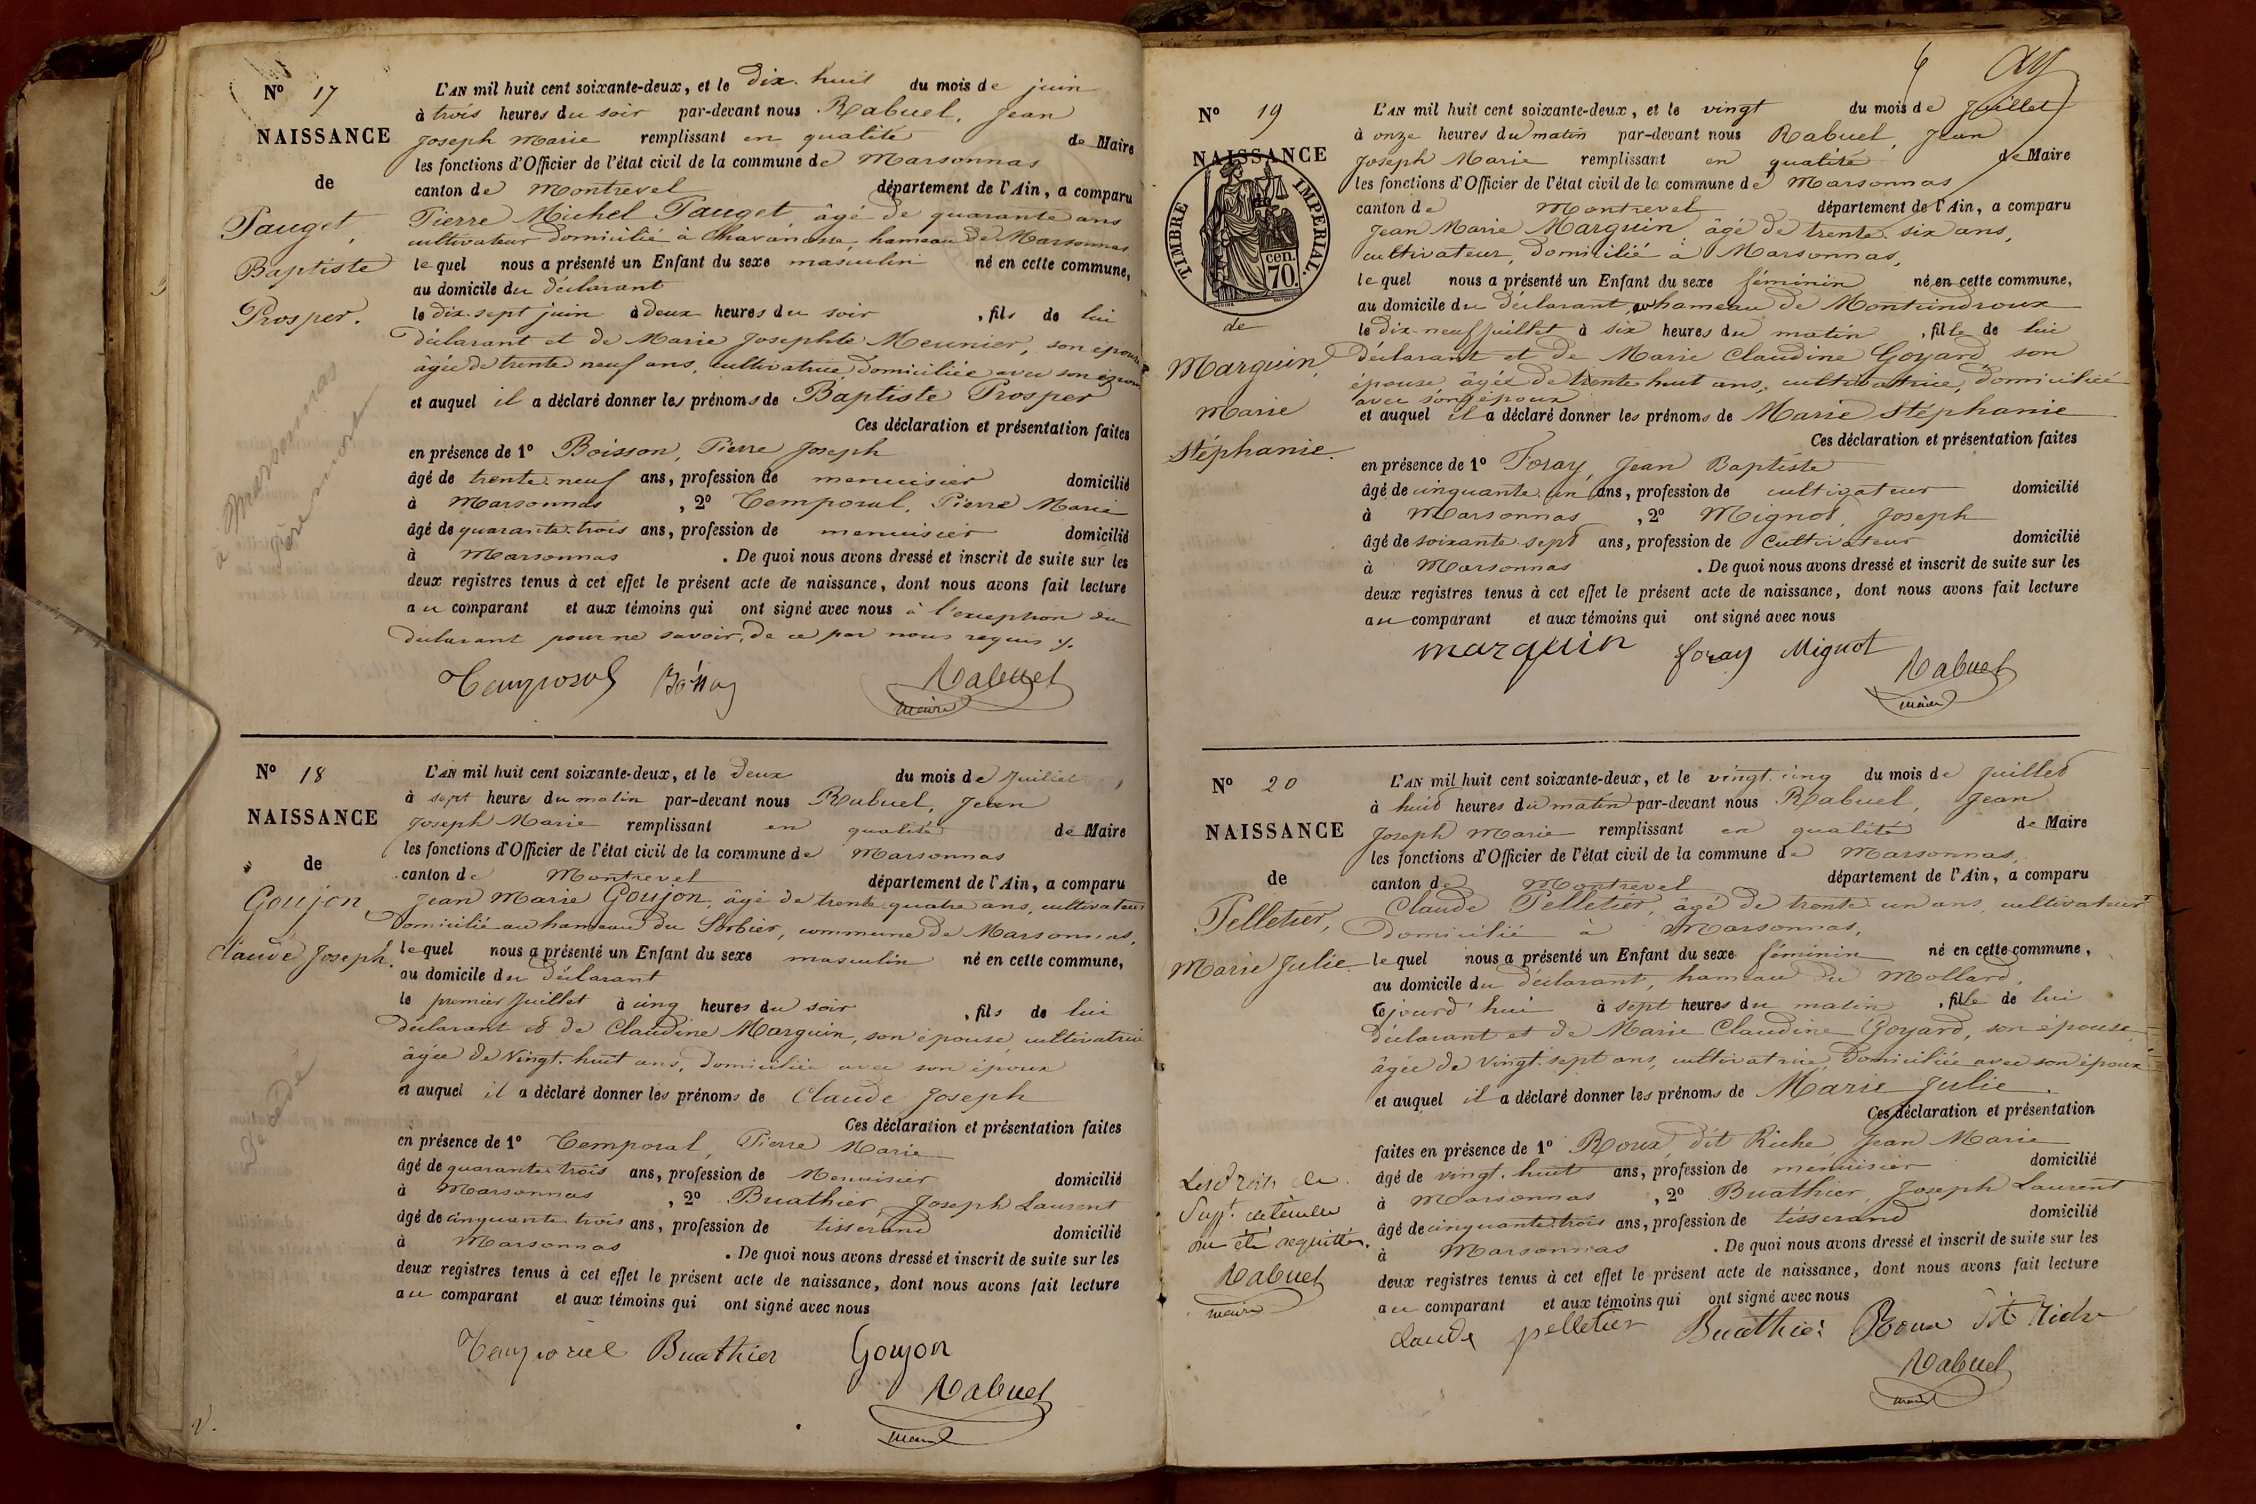 Nº 17
NAISSANCE
de
Pauget,
Baptiste
Prosper.
à Marsonnas
L'AN mil huit cent soixante-deux, et le dix-huit du mois de juin
à trois heures du soir par-devant nous Rabuel, Jean
Joseph Marie remplissant en qualité de Maire
les fonctions d'Officier de l'état civil de la commune de Marsonnas
canton de Montrevel département de l'Ain, a comparu
Pierre Michel Pauget âgé de quarante ans
cultivateur domicilié à Chavanosse, hameau de Marsonnas
lequel nous a présenté un Enfant du sexe masculin né en cette commune,
au domicile du déclarant
le dix-sept juin à deux heures du soir, fils de lui
déclarant et de Marie Josephte Meunier, son épouse
âgée de trente neuf ans, cultivatrice, domiciliée avec son époux
et auquel il a déclaré donner les prénoms de Baptiste Prosper
Ces déclaration et présentation faites
en présence de 1º Boisson, Pierre Joseph
âgé de trente neuf ans, profession de menuisier domicilié
à Marsonnas, 2º Temporal, Pierre Marie
âgé de quarante-trois ans, profession de menuisier domicilié
à Marsonnas. De quoi nous avons dressé et inscrit de suite sur les
deux registres tenus à cet effet le présent acte de naissance, dont nous avons fait lecture
au comparant et aux témoins qui ont signé avec nous à l'exception du
déclarant pour ne savoir, de ce par nous requis
Temporal Rabuel
maire
Nº 18
NAISSANCE
de
Goujon
Claude Joseph.
Décédé
L'AN mil huit cent soixante-deux, et le deux du mois de Juillet,
à sept heures du matin par-devant nous Rabuel, Jean
Joseph Marie remplissant en qualité de Maire
les fonctions d'Officier de l'état civil de la commune de Marsonnas
canton de Montrevel département de l'Ain, a comparu
Jean Marie Goujon, âgé de trente quatre ans, cultivateur
domicilié au hameau du Sorbier, commune de Marsonnas,
lequel nous a présenté un Enfant du sexe masculin né en cette commune,
au domicile du déclarant
le premier Juillet à cinq heures du soir, fils de lui
déclarant et de Claudine Marguin, son épouse, cultivatrice
âgée de vingt-huit ans, domiciliée avec son époux
et auquel il a déclaré donner les prénoms de Claude Joseph
Ces déclaration et présentation faites
en présence de 1º Temporal, Pierre Marie
âgé de quarante-trois ans, profession de Menuisier domicilié
à Marsonnas, 2º Buathier, Joseph Laurent
âgé de cinquante-trois ans, profession de tisserand domicilié
à Marsonnas. De quoi nous avons dressé et inscrit de suite sur les
deux registres tenus à cet effet le présent acte de naissance, dont nous avons fait lecture
au comparant et aux témoins qui ont signé avec nous
Temporal Buathier Goujon
Rabuel
maire
6
Nº 19
NAISSANCE
TIMBRE IMPERIAL.
70 cen.
de
Marguin,
Marie
Stéphanie.
L'AN mil huit cent soixante-deux, et le vingt du mois de Juillet
à onze heures du matin par-devant nous Rabuel, Jean
Joseph Marie remplissant en qualité de Maire
les fonctions d'Officier de l'état civil de la commune de Marsonnas
canton de Montrevel département de l'Ain, a comparu
Jean Marie Marguin âgé de trente-six ans,
cultivateur, domicilié à Marsonnas,
lequel nous a présenté un Enfant du sexe féminin né en cette commune,
au domicile du déclarant, hameau de Montcindroux
le dix-neuf juillet à six heures du matin, fille de lui
déclarant et de Marie Claudine Goyard son
épouse, âgée de trente huit ans, cultivatrice, domiciliée
avec son époux
et auquel il a déclaré donner les prénoms de Marie Stéphanie
Ces déclaration et présentation faites
en présence de 1º Foray, Jean Baptiste
âgé de cinquante un ans, profession de cultivateur domicilié
à Marsonnas, 2º Mignot, Joseph
âgé de soixante-sept ans, profession de Cultivateur domicilié
à Marsonnas. De quoi nous avons dressé et inscrit de suite sur les
deux registres tenus à cet effet le présent acte de naissance, dont nous avons fait lecture
au comparant et aux témoins qui ont signé avec nous
marguin foray Mignot Rabuel
maire
Nº 20
NAISSANCE
de
Pelletier,
Marie Julie.
Les droits de
Supt. de timbre
ont été acquittés.
Rabuel
maire
L'AN mil huit cent soixante-deux, et le vingt-cinq du mois de Juillet
à huit heures du matin par-devant nous Rabuel, Jean
Joseph Marie remplissant en qualité de Maire
les fonctions d'Officier de l'état civil de la commune de Marsonnas,
canton de Montrevel département de l'Ain, a comparu
Claude Pelletier, âgé de trente-un ans, cultivateur
domicilié à Marsonnas,
lequel nous a présenté un Enfant du sexe féminin né en cette commune,
au domicile du déclarant, hameau du Mollard,
Cejourd'hui à sept heures du matin, fille de lui
déclarant et de Marie Claudine Goyard, son épouse,
âgée de vingt-sept ans, cultivatrice, domiciliée avec son époux
et auquel il a déclaré donner les prénoms de Marie Julie.
Ces déclaration et présentation
faites en présence de 1º Roux, dit Riche Jean Marie
âgé de vingt-huit ans, profession de menuisier domicilié
à Marsonnas, 2º Buathier, Joseph Laurent
âgé de cinquante-trois ans, profession de tisserand domicilié
à Marsonnas. De quoi nous avons dressé et inscrit de suite sur les
deux registres tenus à cet effet le présent acte de naissance, dont nous avons fait lecture
au comparant et aux témoins qui ont signé avec nous
Claude pelletier Buathier Roux dit Riche
Rabuel
maire